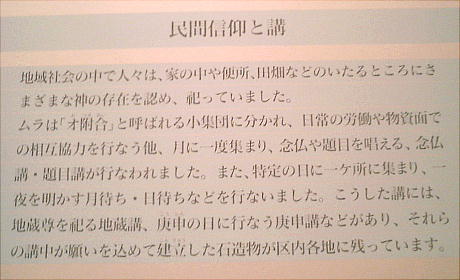 民間信仰と講
地域社会の中で人々は、家の中や便所、田畑などのいたるところにさ
まざまな神の存在を認め、祀っていました。
ムラは「オ附合」と呼ばれる小集団に分かれ、日常の労働や物資面で
の相互協力を行なう他、月に一度集まり、念仏や題目を唱える、念仏
講・題目講が行なわれました。また、特定の日に一ケ所に集まり、一
夜を明かす月待ち・日待ちなどを行ないました。こうした講には、
地蔵尊を祀る地蔵講、庚申の日に行なう庚申講などがあり、それら
の講中が願いを込めて建立した石造物が区内各地に残っています。